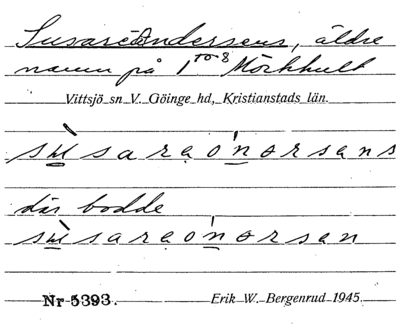 Susareå̈nderssens, äldre
namn på 1 to 8 Mörkhult
Vittsjö sn V. Göinge hd, Kristianstads län.
sùsaraónərsans
där bodde
sùsaraónərsan
Nr 5393. Erik W. Bergenrud 1945.